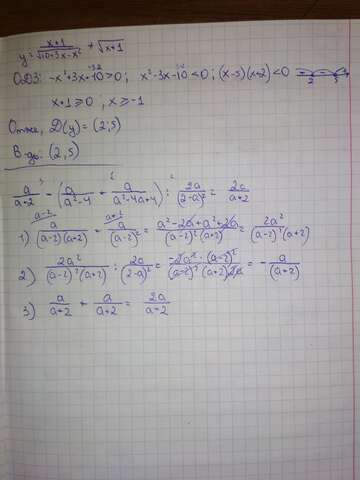 y = \frac{x+1}{\sqrt{10+3x-x²}} + \sqrt{x+1}
ОДЗ: -x²+3x+10>0; x²-3x-10<0; (x-5)(x+2)<0
2 5
x+1≥0; x≥-1
Отже, D(y) = (2;5)
В-дь: (2;5)
\frac{a}{a+2} - (\frac{a}{a²-4} + \frac{a}{a²-4a+4}) : \frac{2a}{(2-a)²} = \frac{2a}{a+2}
1) \frac{a}{(a-2)(a+2)} + \frac{a}{(a-2)²} = \frac{a²-2a+a²+2a}{(a-2)²(a+2)} = \frac{2a²}{(a-2)²(a+2)}
2) \frac{2a²}{(a-2)²(a+2)} : \frac{2a}{(2-a)²} = \frac{-2a²·(a-2)²}{(a-2)²(a+2)2a} = -\frac{a}{(a+2)}
3) \frac{a}{a+2} + \frac{a}{a+2} = \frac{2a}{a+2}